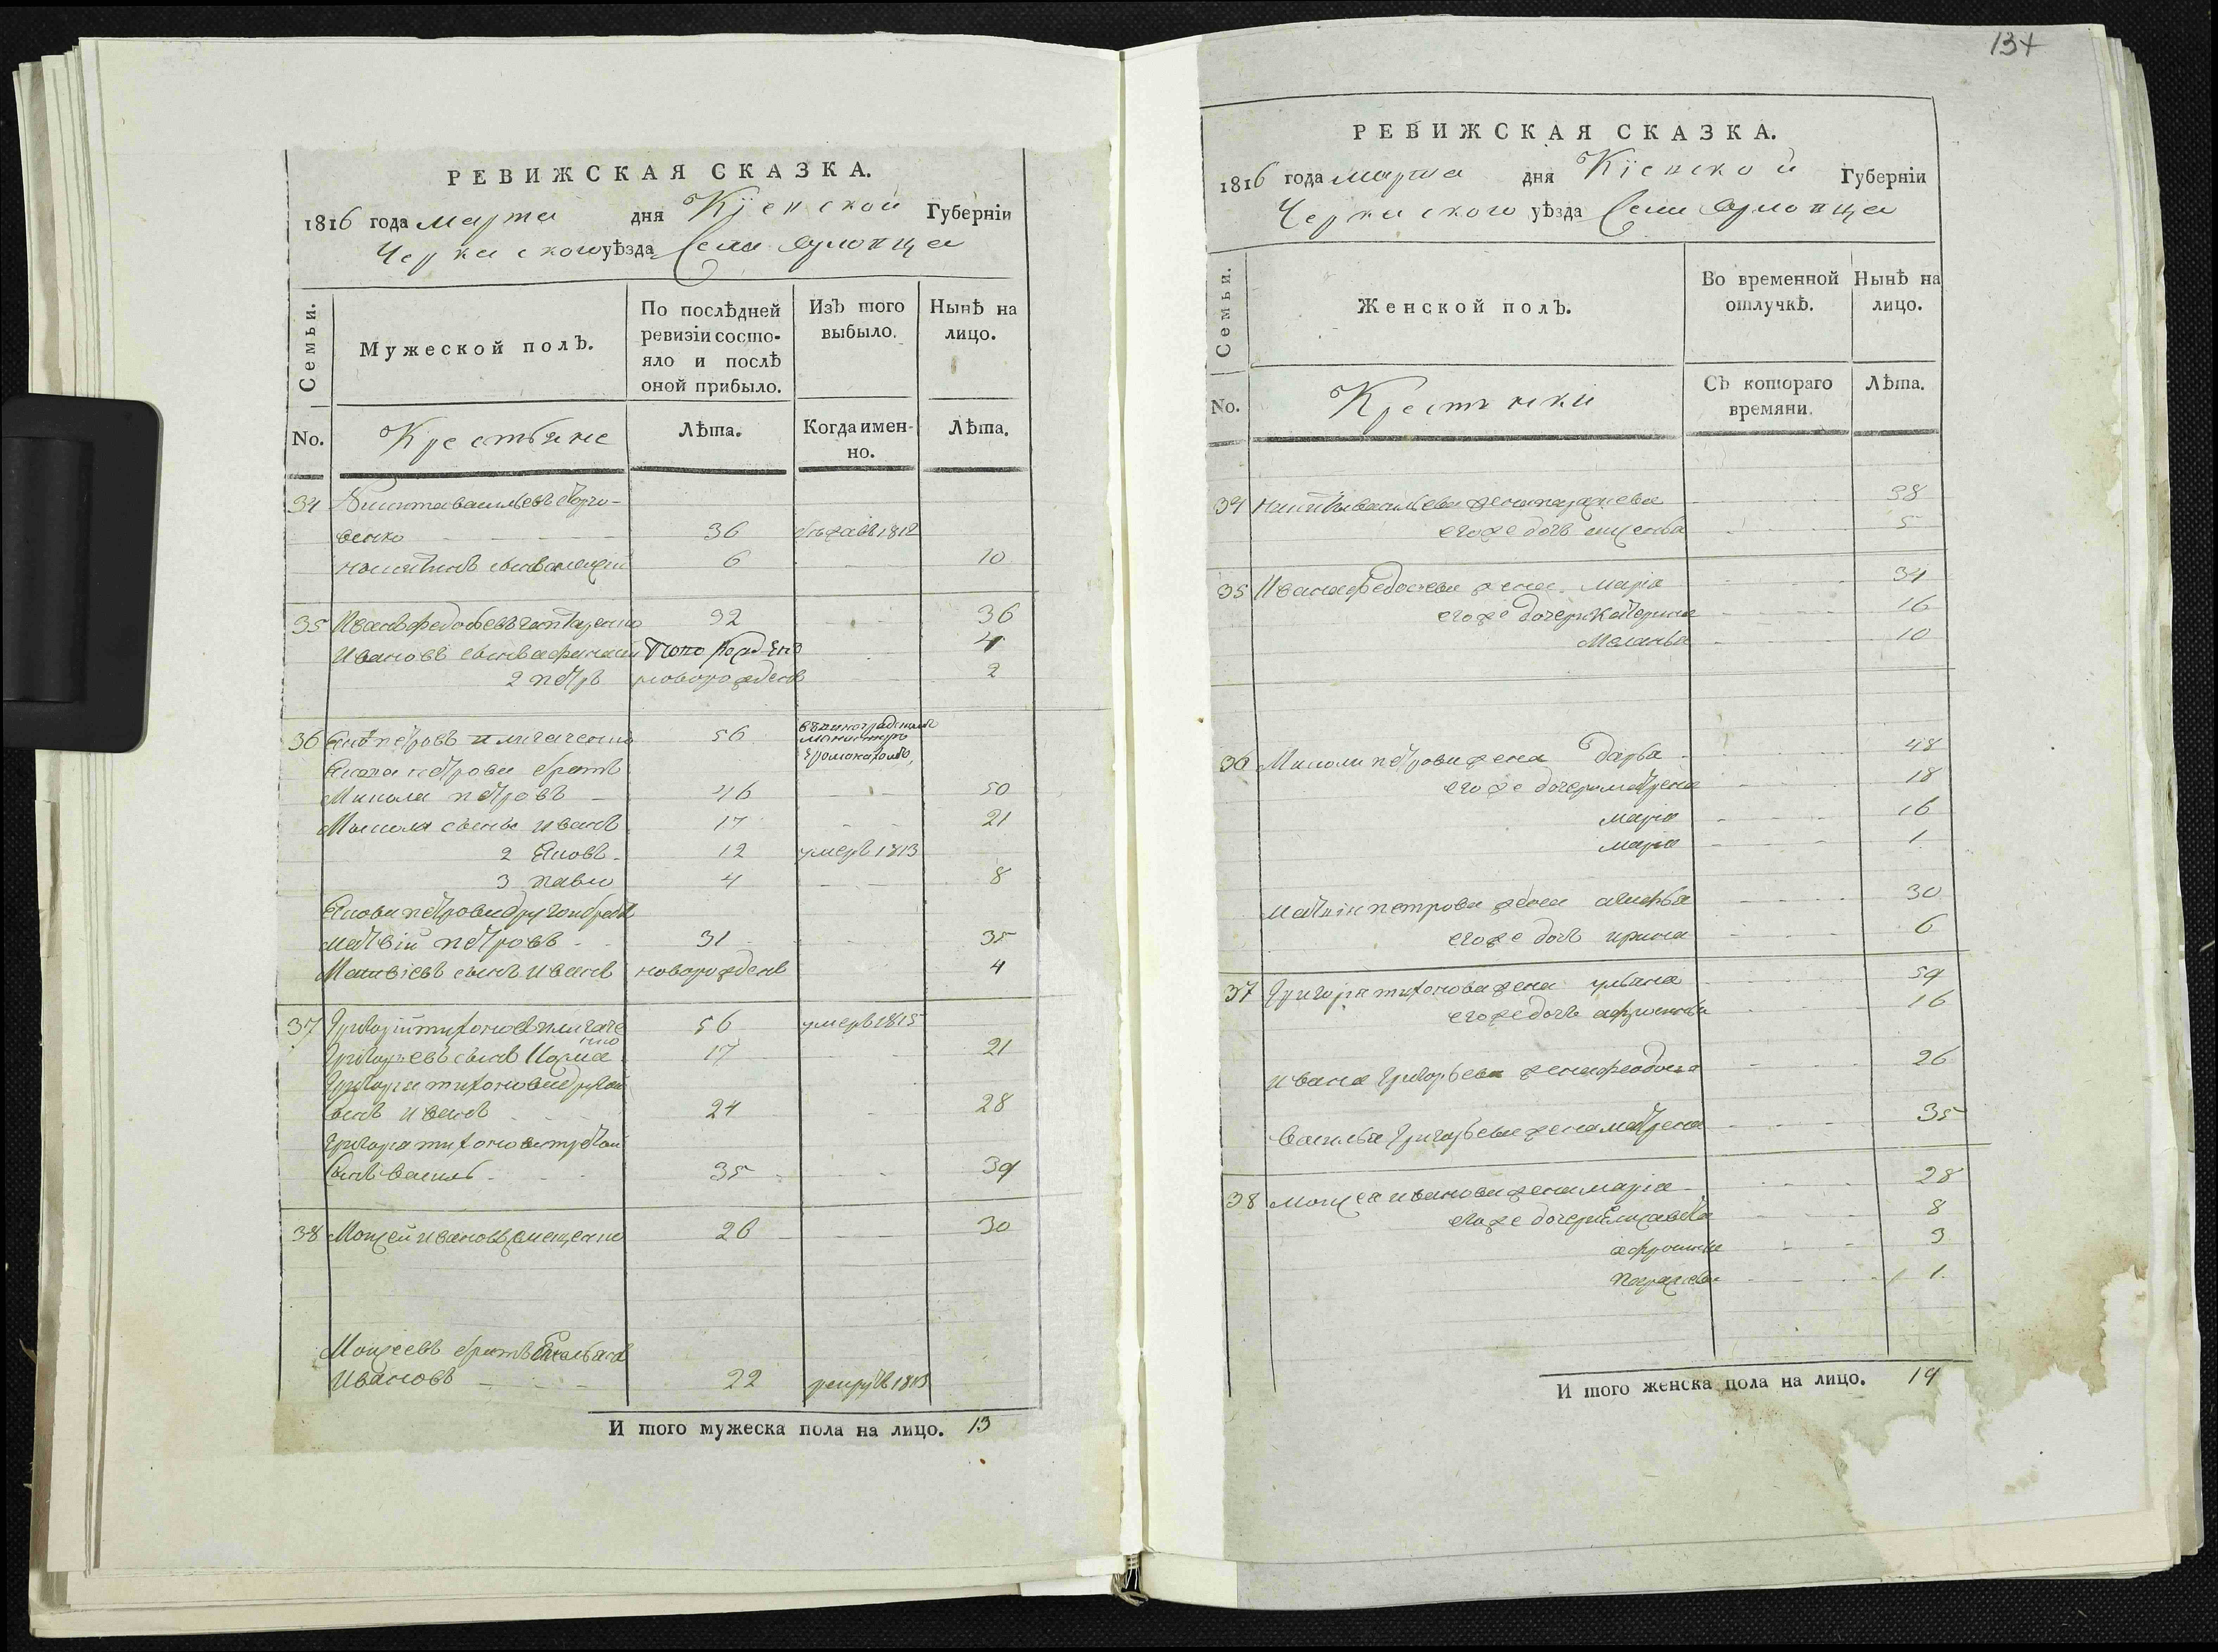 РЕВИЖСКАЯ СКАЗКА.
1816 года марта дня Кіевской Губерніи
Черкаского уѣзда Села Орловца
Семьи.
Мужеской полъ.
По послѣдней ревизіи состояло и послѣ оной прибыло.
Изъ того выбыло.
Нынѣ на лицо.
No.
Крестьяне
Лѣта.
Когда именно.
Лѣта.
34 Никита васильевъ
36 1812
никитинъ сынъ алексѣй 6 10
35 Иванъ федосѣевъ 32 36
Ивановъ сынъ афанасій 4
2 петръ новорожденъ 2
36 петровъ 56 въ виноградскомъ монастырѣ
Якова петрова братъ
Микола петровъ 46 50
Миколы сыны иванъ 17 21
2 Яковъ 12 умеръ 1813
3 павло 4 8
Якова петрова другой братъ
матвій петровъ 31 35
Матвіевъ сынъ иванъ новорожденъ 4
37 Григорій тихоновъ 56 умеръ 1815
Григорьевъ сынъ 17 21
Григорія тихонова другой
сынъ иванъ 24 28
Григорія тихонова третой
сынъ василь 35 39
38 Моисей ивановъ 26 30
Моисеевъ братъ Емельянъ
Ивановъ 22 рекрутъ 1813
И того мужеска пола на лицо. 13
134
РЕВИЖСКАЯ СКАЗКА.
1816 года марта дня Кіевской Губерніи
Черкаского уѣзда Села Орловца
Семьи.
Женской полъ.
Во временной отлучкѣ.
Нынѣ на лицо.
No.
Крестьянки
Съ котораго времяни.
Лѣта.
34 Никиты васильева жена параскева 38
его же дочь 5
35 Ивана федосѣева жена марія 34
его же дочери катерина 16
Меланья 10
36 Миколи петрова жена дарья 48
его же дочери матрена 18
марія 16
марія 1
матвія петрова жена 30
его же дочь ирина 6
37 Григорія тихонова жена ульяна 59
его же дочь афросинья 16
ивана Григорьева жена феодосія 26
василья Григорьева жена матрена 35
38 моисея иванова жена марія 28
его же дочери Елисавета 8
афросинья 3
параскева 1
И того женска пола на лицо. 19